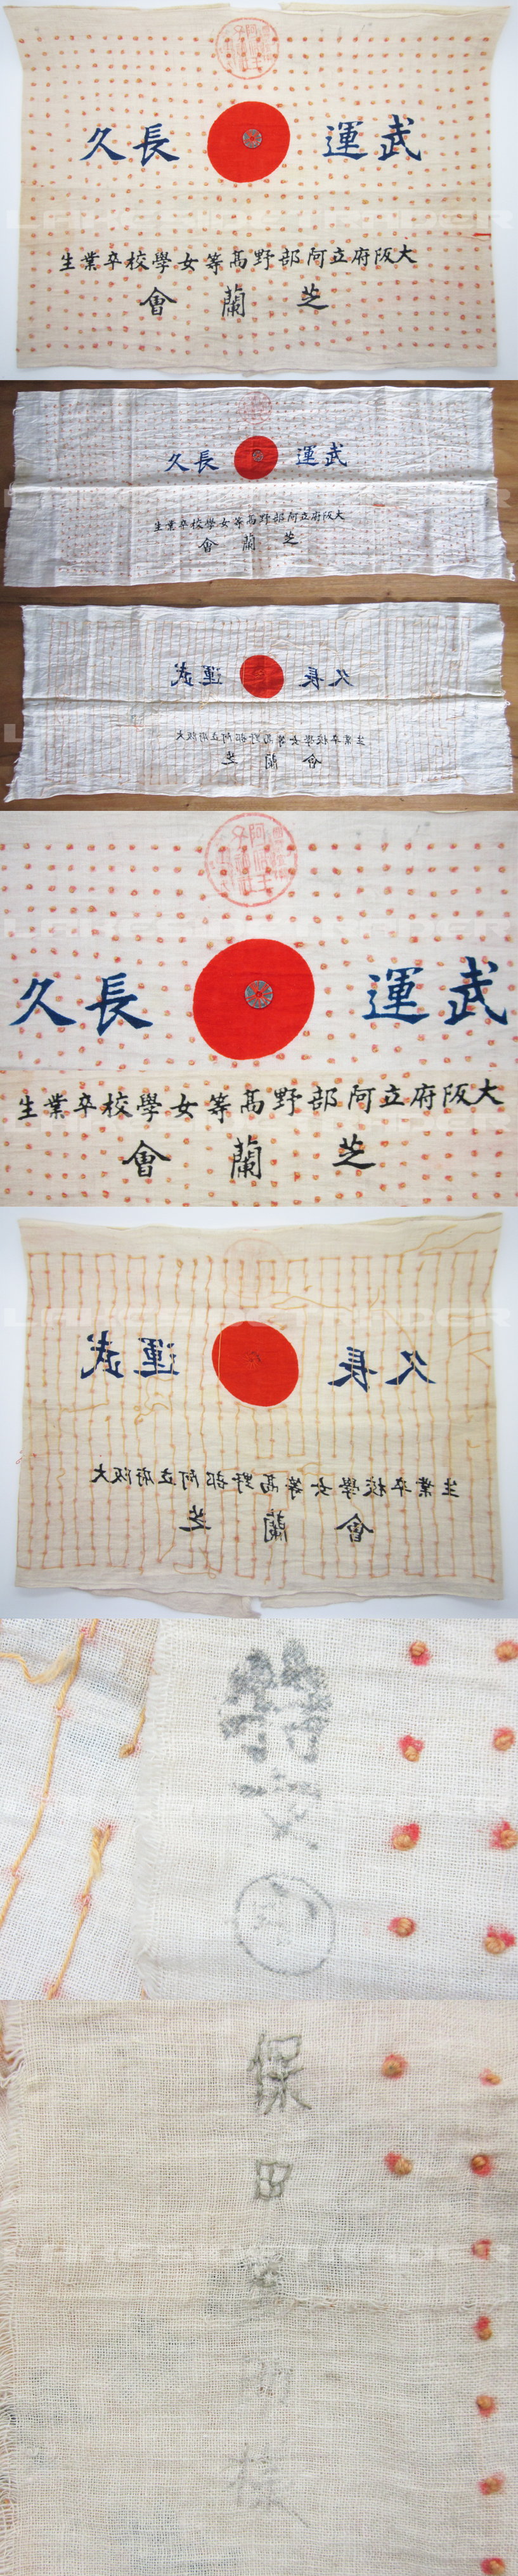 武運長久
大阪府立阿部野高等女學校卒業生
芝蘭會
LAKESIDE TRADER
武運長久
大阪府立阿部野高等女學校卒業生
芝蘭會
武運長久
大阪府立阿部野高等女學校卒業生
芝蘭會
武運長久
大阪府立阿部野高等女學校卒業生
芝蘭會
LAKESIDE TRADER
武運長久
大阪府立阿部野高等女學校卒業生
芝蘭會
LAKESIDE TRADER
保田
様